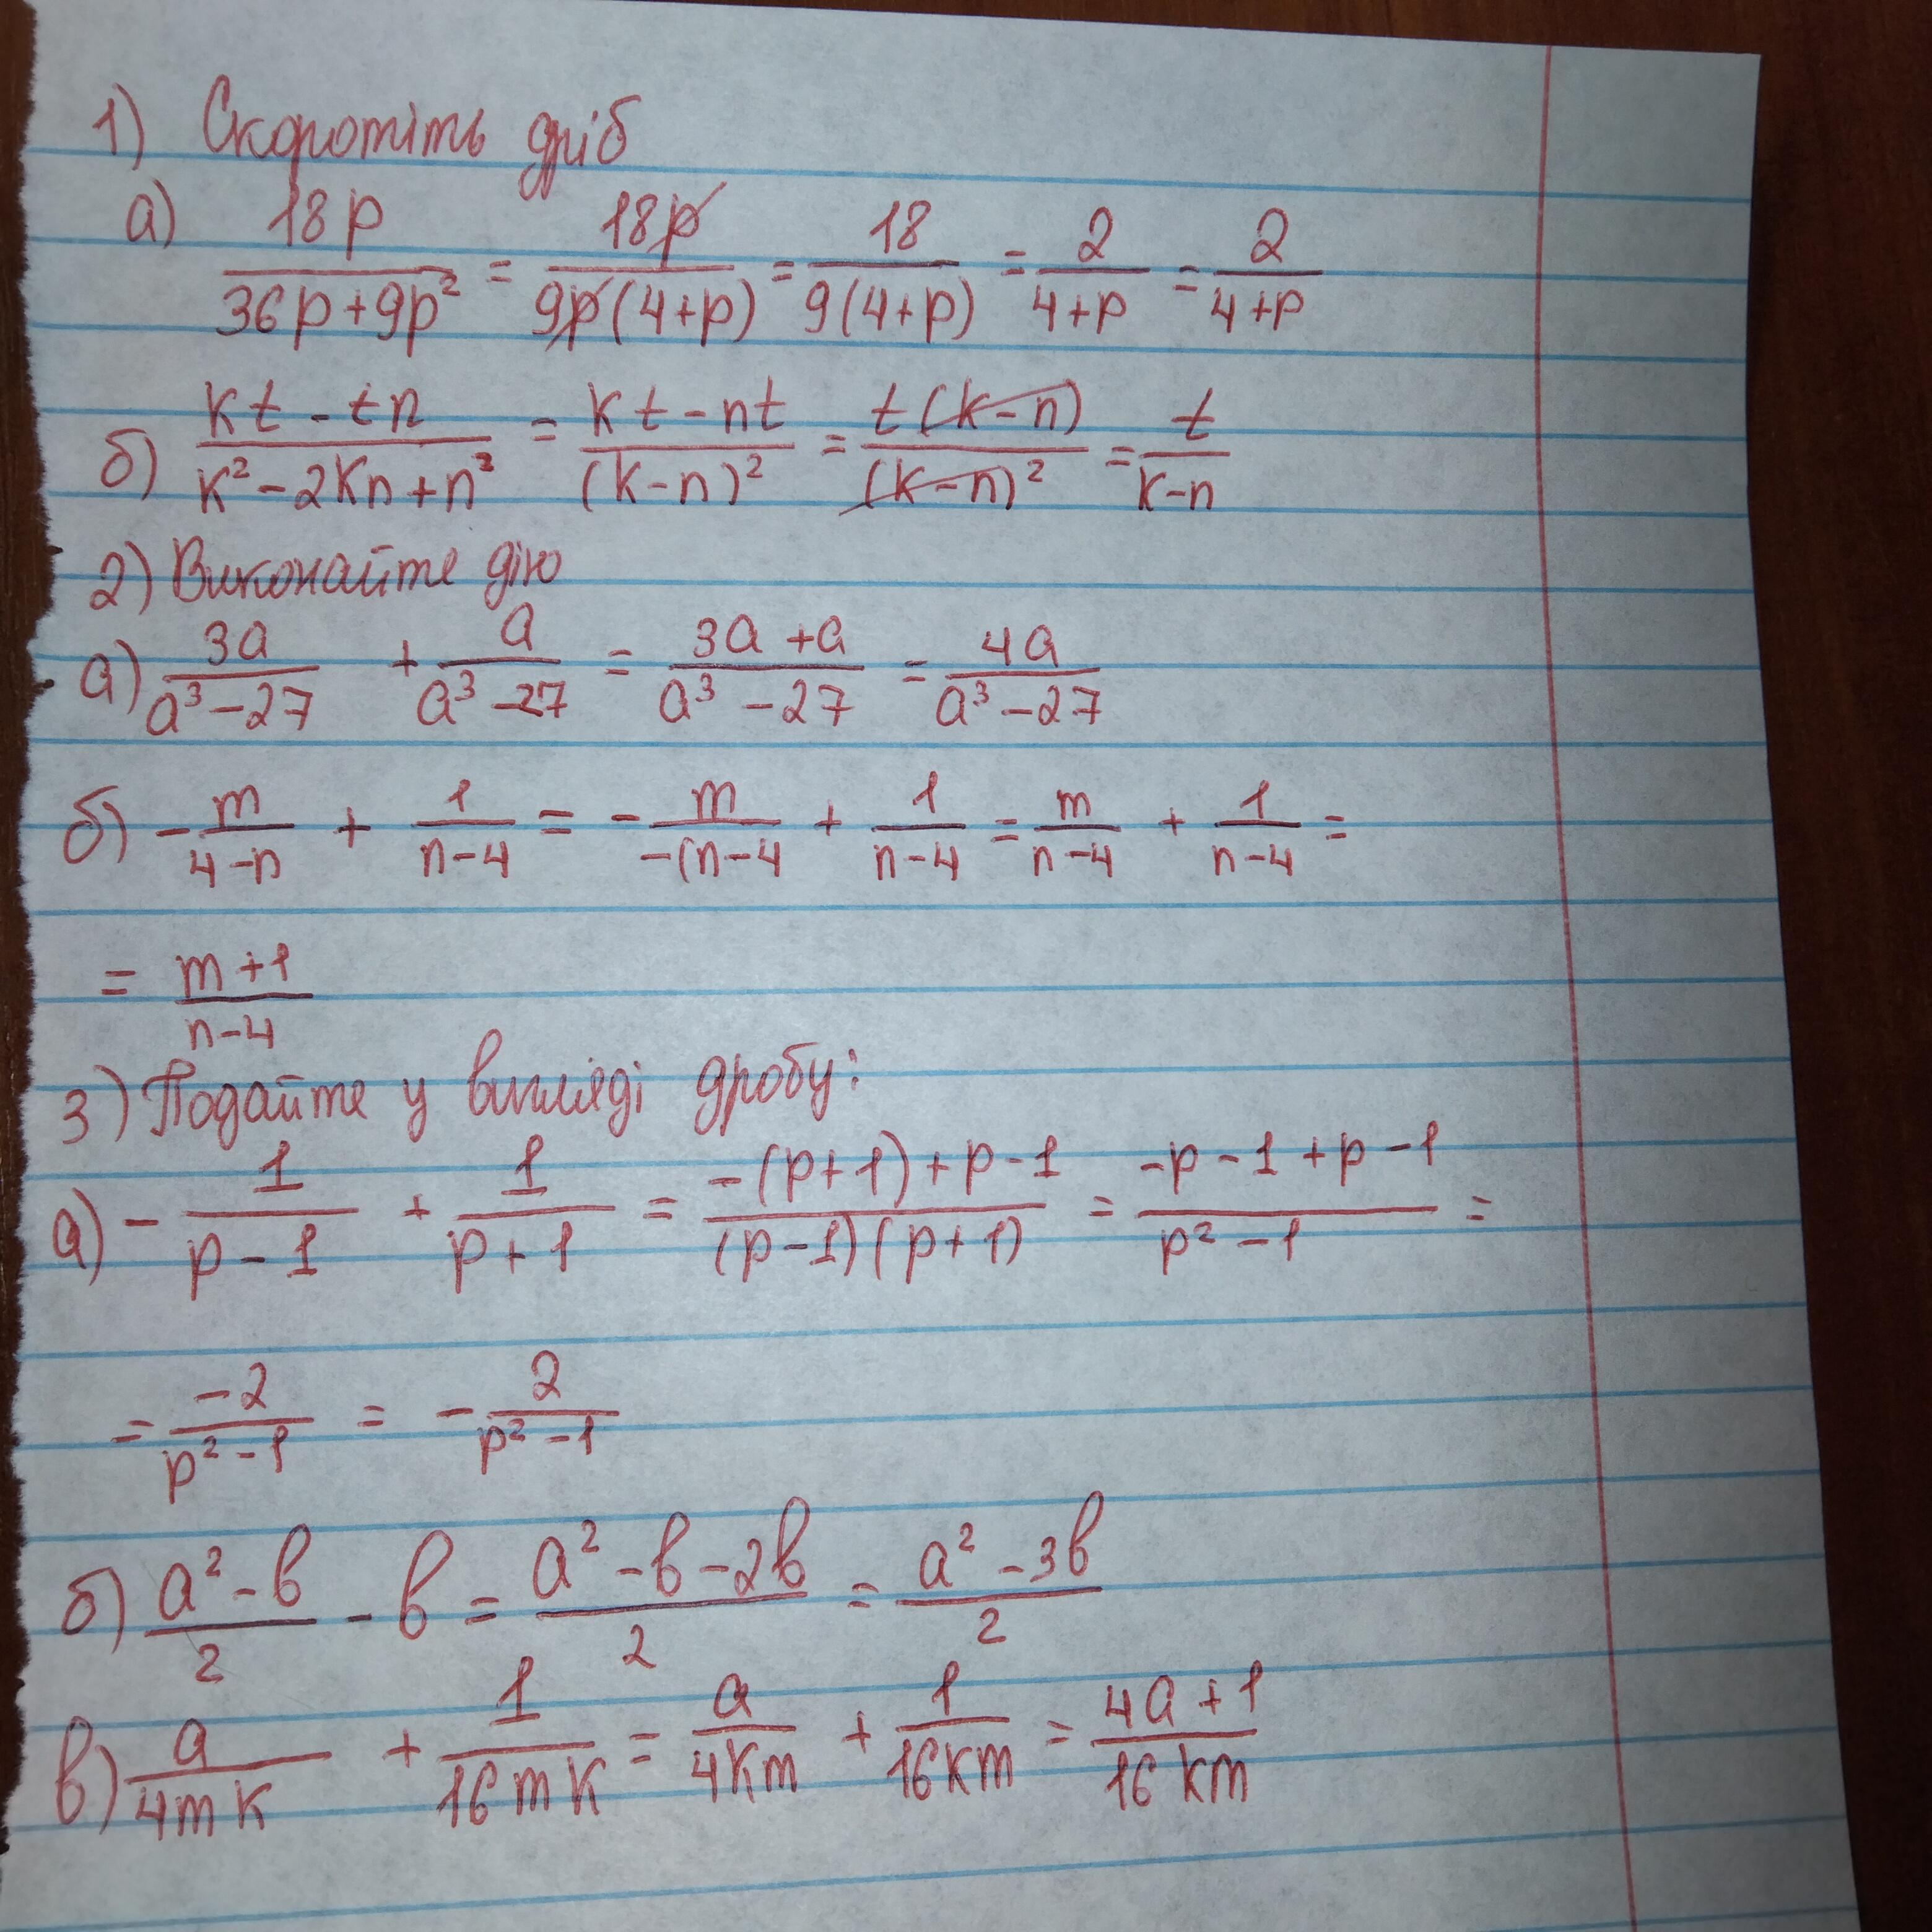 1) Скоротіть дріб
а) 18p/(36p+9p²) = 18p/(9p(4+p)) = 18/(9(4+p)) = 2/(4+p) = 2/(4+p)
б) (kt-tn)/(k²-2kn+n²) = (kt-nt)/((k-n)²) = t(k-n)/((k-n)²) = t/(k-n)
2) Виконайте дію
а) 3a/(a³-27) + a/(a³-27) = (3a+a)/(a³-27) = 4a/(a³-27)
б) - m/(4-n) + 1/(n-4) = - m/(-(n-4) + 1/(n-4) = m/(n-4) + 1/(n-4) =
= (m+1)/(n-4)
3) Подайте у вигляді дробу:
а) - 1/(p-1) + 1/(p+1) = (-(p+1)+p-1)/((p-1)(p+1)) = (-p-1+p-1)/(p²-1) =
= -2/(p²-1) = - 2/(p²-1)
б) (a²-b)/2 - b = (a²-b-2b)/2 = (a²-3b)/2
в) a/(4mk) + 1/(16mk) = a/(4km) + 1/(16km) = (4a+1)/(16km)